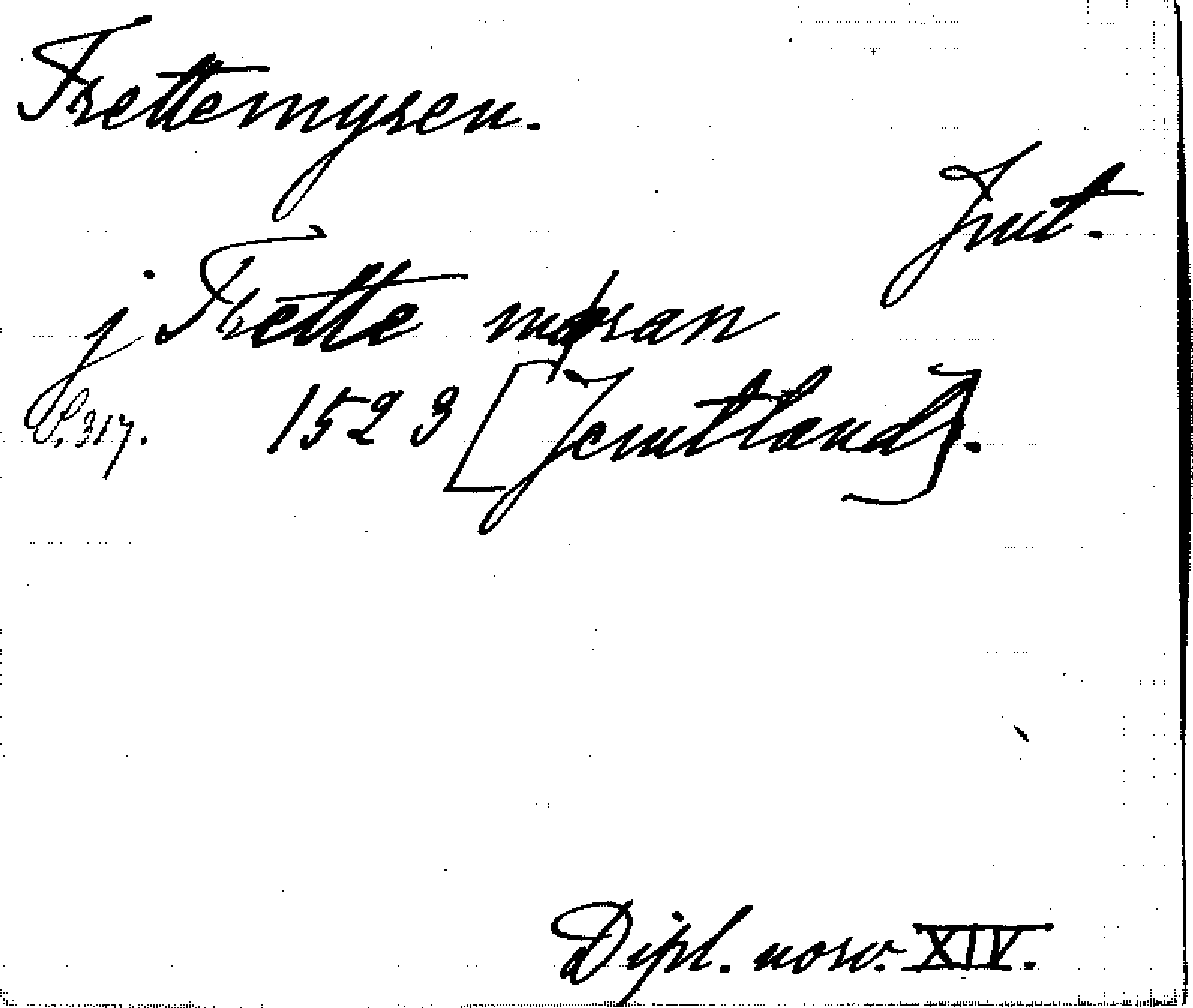 Trettemyren.
Jmt.
j Trette møran
S. 317. 1523 [Jemtland].
Dipl. norv. XIV.